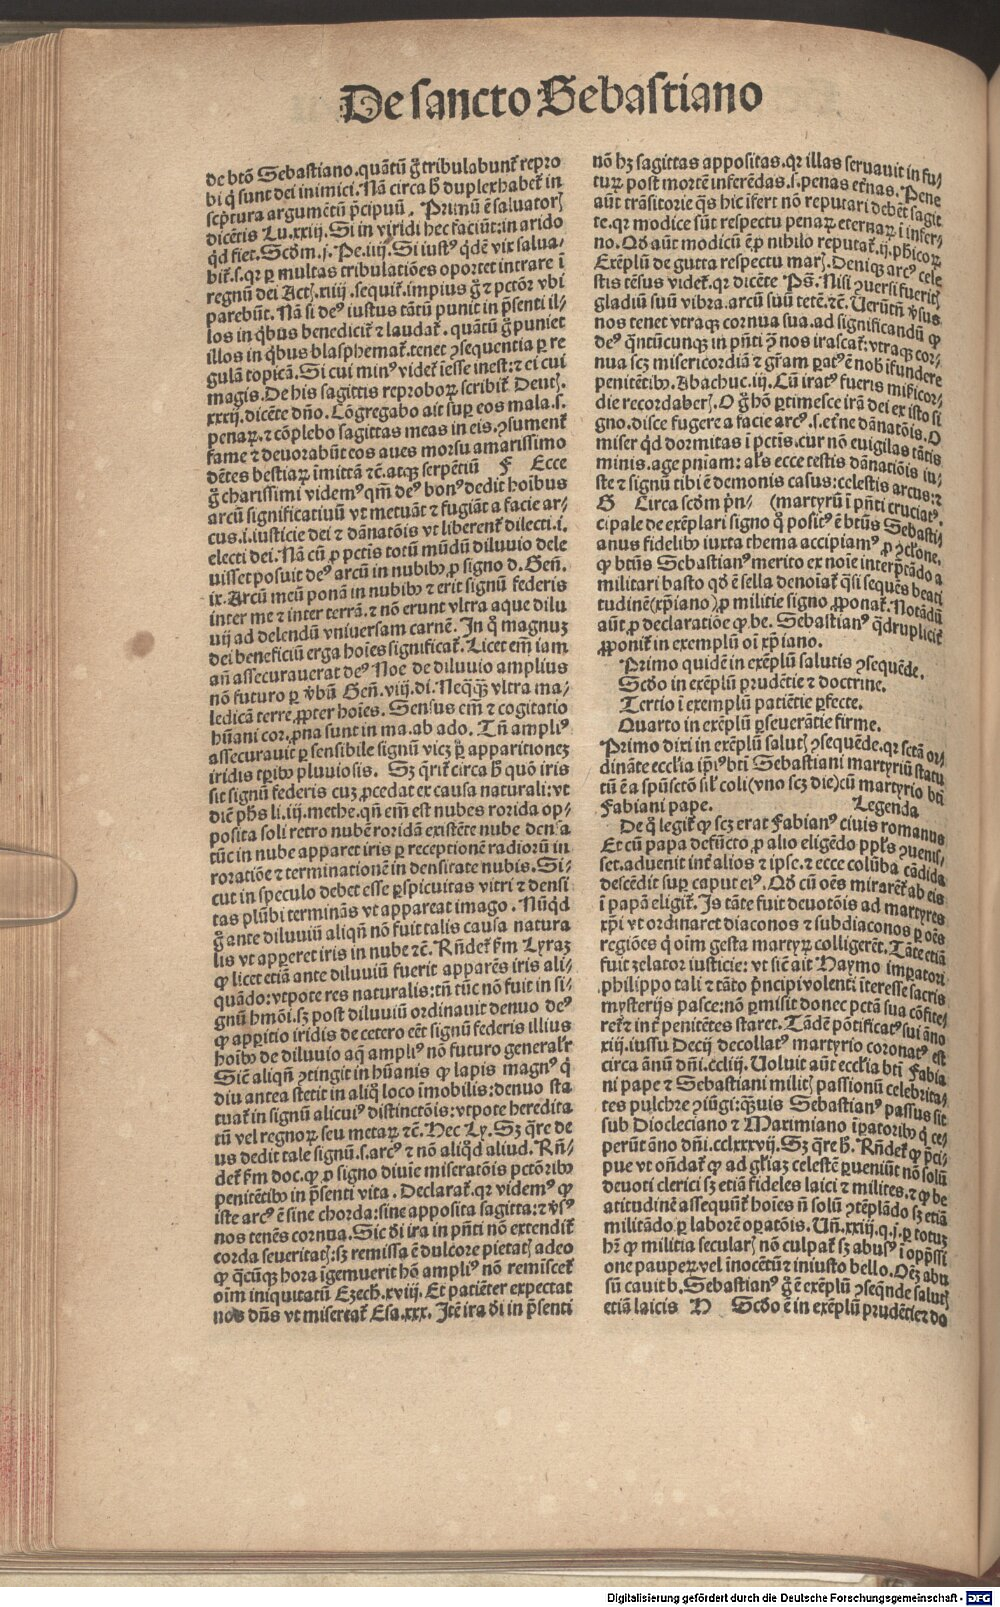 De sancto Sebastiano
de btō Sebastiano. quātū g̃ tribulabunt᷑ repro
bi q̇ sunt dei inimici. Nā circa h̄ duplex habet᷑ in
scp̄tura argumētū p̄cipuū. Primū ē saluatorꝭ
dicētis Lu. xxiij. Si in viridi hec faciūt: in arido
qd̄ fiet. Scd̓m .j. Pe. iiij. Si iustꝰ qdē vix salua⸗
bit᷑ .s. qr ꝑ multas tribulatiōes oportet intrare ī
regnū dei Actꝭ. xiiij. sequit᷑. impius g̃ ⁊ pctōr vbi
parebūt. Nā si deꝰ iustus tātū punit in p̄senti il⸗
los in qbus benedicit᷑ ⁊ laudat᷑. quātū g̃ puniet
illos in qbus blasphemat᷑. tenet ꝯsequentia ꝑ re
gulā topicā. Si cui minꝰ videt᷑ īesse inest: ⁊ ei cui
magis. De his sagittis reproboꝝ scribit᷑ Deutꝭ.
xxxij. dicēte dn̄o. Cōgregabo ait suꝑ eos mala .s.
penaꝝ. ⁊ cōplebo sagittas meas in eis. ꝯsument᷑
fame ⁊ deuorabūt eos aues morsu amarissimo
dētes bestiaꝝ īmittā ⁊c. atqꝫ serpētiū F Ecce
g̃ charissimi videmꝰ qm̄ deꝰ bonꝰ dedit hoībus
arcū significatiuū vt metuāt ⁊ fugiāt a facie ar⸗
cus .i. iusticie dei ⁊ dānatōis vt liberent᷑ dilecti .i.
electi dei. Nā cū ꝓ pctīs totū mūdū diluuio dele
uisset posuit deꝰ arcū in nubibꝰ ꝓ signo d. Gen̄.
ix. Arcū meū ponā in nubibꝰ ⁊ erit signū federis
inter me ⁊ inter terrā. ⁊ nō erunt vltra aque dilu
uij ad delendū vniuersam carnē. In q̊ magnuꝫ
dei beneficiū erga hoīes significat᷑. Licet em̄ iam
an̄ assecurauerat deꝰ Noe de diluuio amplius
nō futuro ꝑ v̓bū Gen̄. viij. di. Neqꝫ̄ vltra ma⸗
ledicā terre ꝓpter hoīes. Sensus em̄ ⁊ cogitatio
hūani cor. ꝓna sunt in ma. ab ado. Tn̄ ampliꝰ
assecurauit ꝑ sensibile signū vicꝫ ꝑ apparitioneꝫ
iridis tꝑibꝰ pluuiosis. Sꝫ q̄rit᷑ circa h̄ quō iris
sit signū federis cuꝫ ꝓcedat ex causa naturali: vt
diē ph̄s li. iij. methe. qn̄ em̄ est nubes rorida op⸗
posita soli retro nubē roridā existēte nube densa
tūc in nube apparet iris ꝑ receptionē radiorū in
roratiōe ⁊ terminationē in densitate nubis. Si⸗
cut in speculo debet esse ꝑspicuitas vitri ⁊ densi
tas plūbi terminās vt appareat imago. Nūqd
g̃ ante diluuiū aliqn̄ nō fuit talis causa natura
lis vt apꝑeret iris in nube ⁊c. Rn̄det᷑ fm̄ Lyraꝫ
ꝙ licet etiā ante diluuiū fuerit apparēs iris ali⸗
quādo: vtpote res naturalis: tn̄ tūc nō fuit in si⸗
gnū hm̄oi. sꝫ post diluuiū ordinauit denuo deꝰ
ꝙ apꝑitio iridis de cetero eēt signū federis illius
hoibꝰ de diluuio aq̄ ampliꝰ nō futuro general̓r
Sic̄ aliqn̄ ꝯtingit in hūanis ꝙ lapis magnꝰ q̇
diu antea stetit in aliq̊ loco īmobilis: denuo sta
tuat᷑ in signū alicuiꝰ distinctōis: vtpote heredita
tū vel regnoꝝ seu metaꝝ ⁊c. Hec Ly. Sꝫ q̄re de
us dedit tale signū .s. arcꝰ ⁊ nō aliqd aliud. Rn̄⸗
det᷑ fm̄ doc. ꝙ ꝓ signo diuīe miseratōis pctōribꝰ
penitētibꝰ in p̄senti vita. Declarat᷑. qr videmꝰ ꝙ
iste arcꝰ ē sine chorda: sine apposita sagitta: ⁊ v̓sꝰ
nos tenēs cornua. Sic d̓i ira in pn̄ti nō extendit᷑
corda seueritatꝭ: sꝫ remissa ē dulcore pietatꝭ adeo
ꝙ q̄cūqꝫ hora īgemuerit hō ampliꝰ nō remiscet᷑
oīm iniquitatū Ezech. xviij. Et patiēter expectat
nos dn̄s vt misereat᷑ Esa. xxx. Itē ira d̓i in p̄senti
nō hꝫ sagittas appositas. qr illas seruauit in fu⸗
tuꝝ post mortē inferēdas .s. penas et̓nas. Pene
aūt trāsitorie q̄s hic īfert nō reputari debēt sagit
te. qr modice sūt respectu penaꝝ eternaꝝ ī infer⸗
no. Qd̓ aūt modicū ē ꝓ nihilo reputat᷑ .ij. phicoꝝ
Exēplū de gutta respectu marꝭ. Deniqꝫ arcꝰ cele
stis tēsus videt᷑. qr dicēte Ps̄. Nisi ꝯuersi fueritꝭ
gladiū suū vibra. arcū suū tetē. ⁊c. Uerūtn̄ v̓sus
nos tenet vtraqꝫ cornua sua. ad significandū ꝙ
deꝰ q̄ntūcunqꝫ in pn̄ti ꝑ̄ nos irascat᷑: vtraqꝫ cor⸗
nua scꝫ misericordiā ⁊ gr̄am ꝑatꝰ ē nob̓ īfundere
penitētibꝰ. Abachuc. iij. Cū iratꝰ fueris mīḱicor⸗
die recordaberꝭ. O g̃ hō ꝑtimesce irā dei ex isto si
gno. disce fugere a facie arcꝰ .s. et̓ne dānatōis. O
miser qd dormitas ī pctīs. cur nō euigilas tātis
minis. age pniam: al̓s ecce testis dānatiōis iu⸗
ste ⁊ signū tibi ē demonis casus: celestis arcus: ⁊
G Circa scd̓m p̄n⸗ (martyrū ī pn̄ti cruciatꝰ.
cipale de exēplari signo q̊ positꝰ ē btūs Sebasti⸗
anus fidelibꝰ iuxta thema accipiamꝰ ꝓ ꝯcl̓one.
ꝙ btūs Sebastianꝰ merito ex noīe interp̄tādo a
militari basto qd̓ ē sella denoīat᷑ q̄si sequēs beati
tudinē (xp̄iano) ꝓ militie signo ꝓponat᷑. Notādū
aūt ꝓ declaratiōe ꝙ be. Sebastianꝰ q̄druplicit᷑
ꝓponit᷑ in exemplū oī xp̄iano.
Primo quidē in exēplū salutis ꝯsequēde.
Scd̓o in exēplū prudētie ⁊ doctrine.
Tertio ī exemplū patiētie ꝑfecte.
Quarto in exēplū ꝑseuerātie firme.
Primo dixi in exēplū salutꝭ ꝯsequēde. qr sctā or⸗
dināte eccl̓ia ip̄iꝰ bti Sebastiani martyriū statu
tū ē a spūsctō sil̓ coli (vno scꝫ die) cū martyrio bti
Fabiani pape. Legenda
De q̊ legit᷑ ꝙ scꝫ erat Fabianꝰ ciuis romanus
Et cū papa defūcto ꝓ alio eligēdo ppl̓s ꝯuenis⸗
set. aduenit int᷑ alios ⁊ ipse. ⁊ ecce colūba cādida
descēdit suꝑ caput eiꝰ. Qd̓ cū oēs mirarēt᷑ ab eis
ī papā eligit᷑. Is tāte fuit deuotōis ad martyres
xp̄i vt ordinaret diaconos ⁊ subdiaconos ꝑ oēs
regiōes q̇ oīm gesta martyꝝ colligerēt. Tāte etiā
fuit zelator iusticie: vt sic̄ ait Haymo imꝑatori
philippo tali ⁊ tāto p̄ncipi volenti īteresse sacris
mysterijs pasce: nō ꝑmisit donec pctā sua cōfite⸗
ret᷑ ⁊ int᷑ penitētes staret. Tādē pōtificatꝰ sui āno
xiij. iussu Decij decollatꝰ martyrio coronatꝰ est
circa ānū dn̄i. ccliij. Uoluit aūt eccl̓ia bti Fabia
ni pape ⁊ Sebastiani militꝭ passionū celebrita⸗
tes pulchre ꝯiūgi: q̄uis Sebastianꝰ passus sit
sub Diocleciano ⁊ Maximiano īꝑatoribꝰ q̇ ce⸗
perūt āno dn̄i. cclxxxvij. Sꝫ q̄re h̄. Rn̄det᷑ ꝙ p̄ci⸗
pue vt on̄dat᷑ ꝙ ad gl̓iaꝫ celestē ꝑueniūt nō solū
deuoti clerici sꝫ etiā fideles laici ⁊ milites. ⁊ ꝙ be
atitudinē assequūt᷑ hoīes n̄ solū ꝯtēplādo sꝫ etiā
militādo ꝑ laborē oꝑatōis. Un̄. xxiij. q. j. ꝑ totuꝫ
hr̄ ꝙ militia secularꝭ nō culpat᷑ sꝫ abusꝰ ī opp̄ssi
one pauperꝝ vel inocētū ⁊ iniusto bello. Oēꝫ abu
sū cauit b. Sebastianꝰ g̃ ē exēplū ꝯseq̄nde salutꝭ
etiā laicis H Scd̓o ē in exēplū prudētie ⁊ do
Digitalisierung gefördert durch die Deutsche Forschungsgemeinschaft - DFG